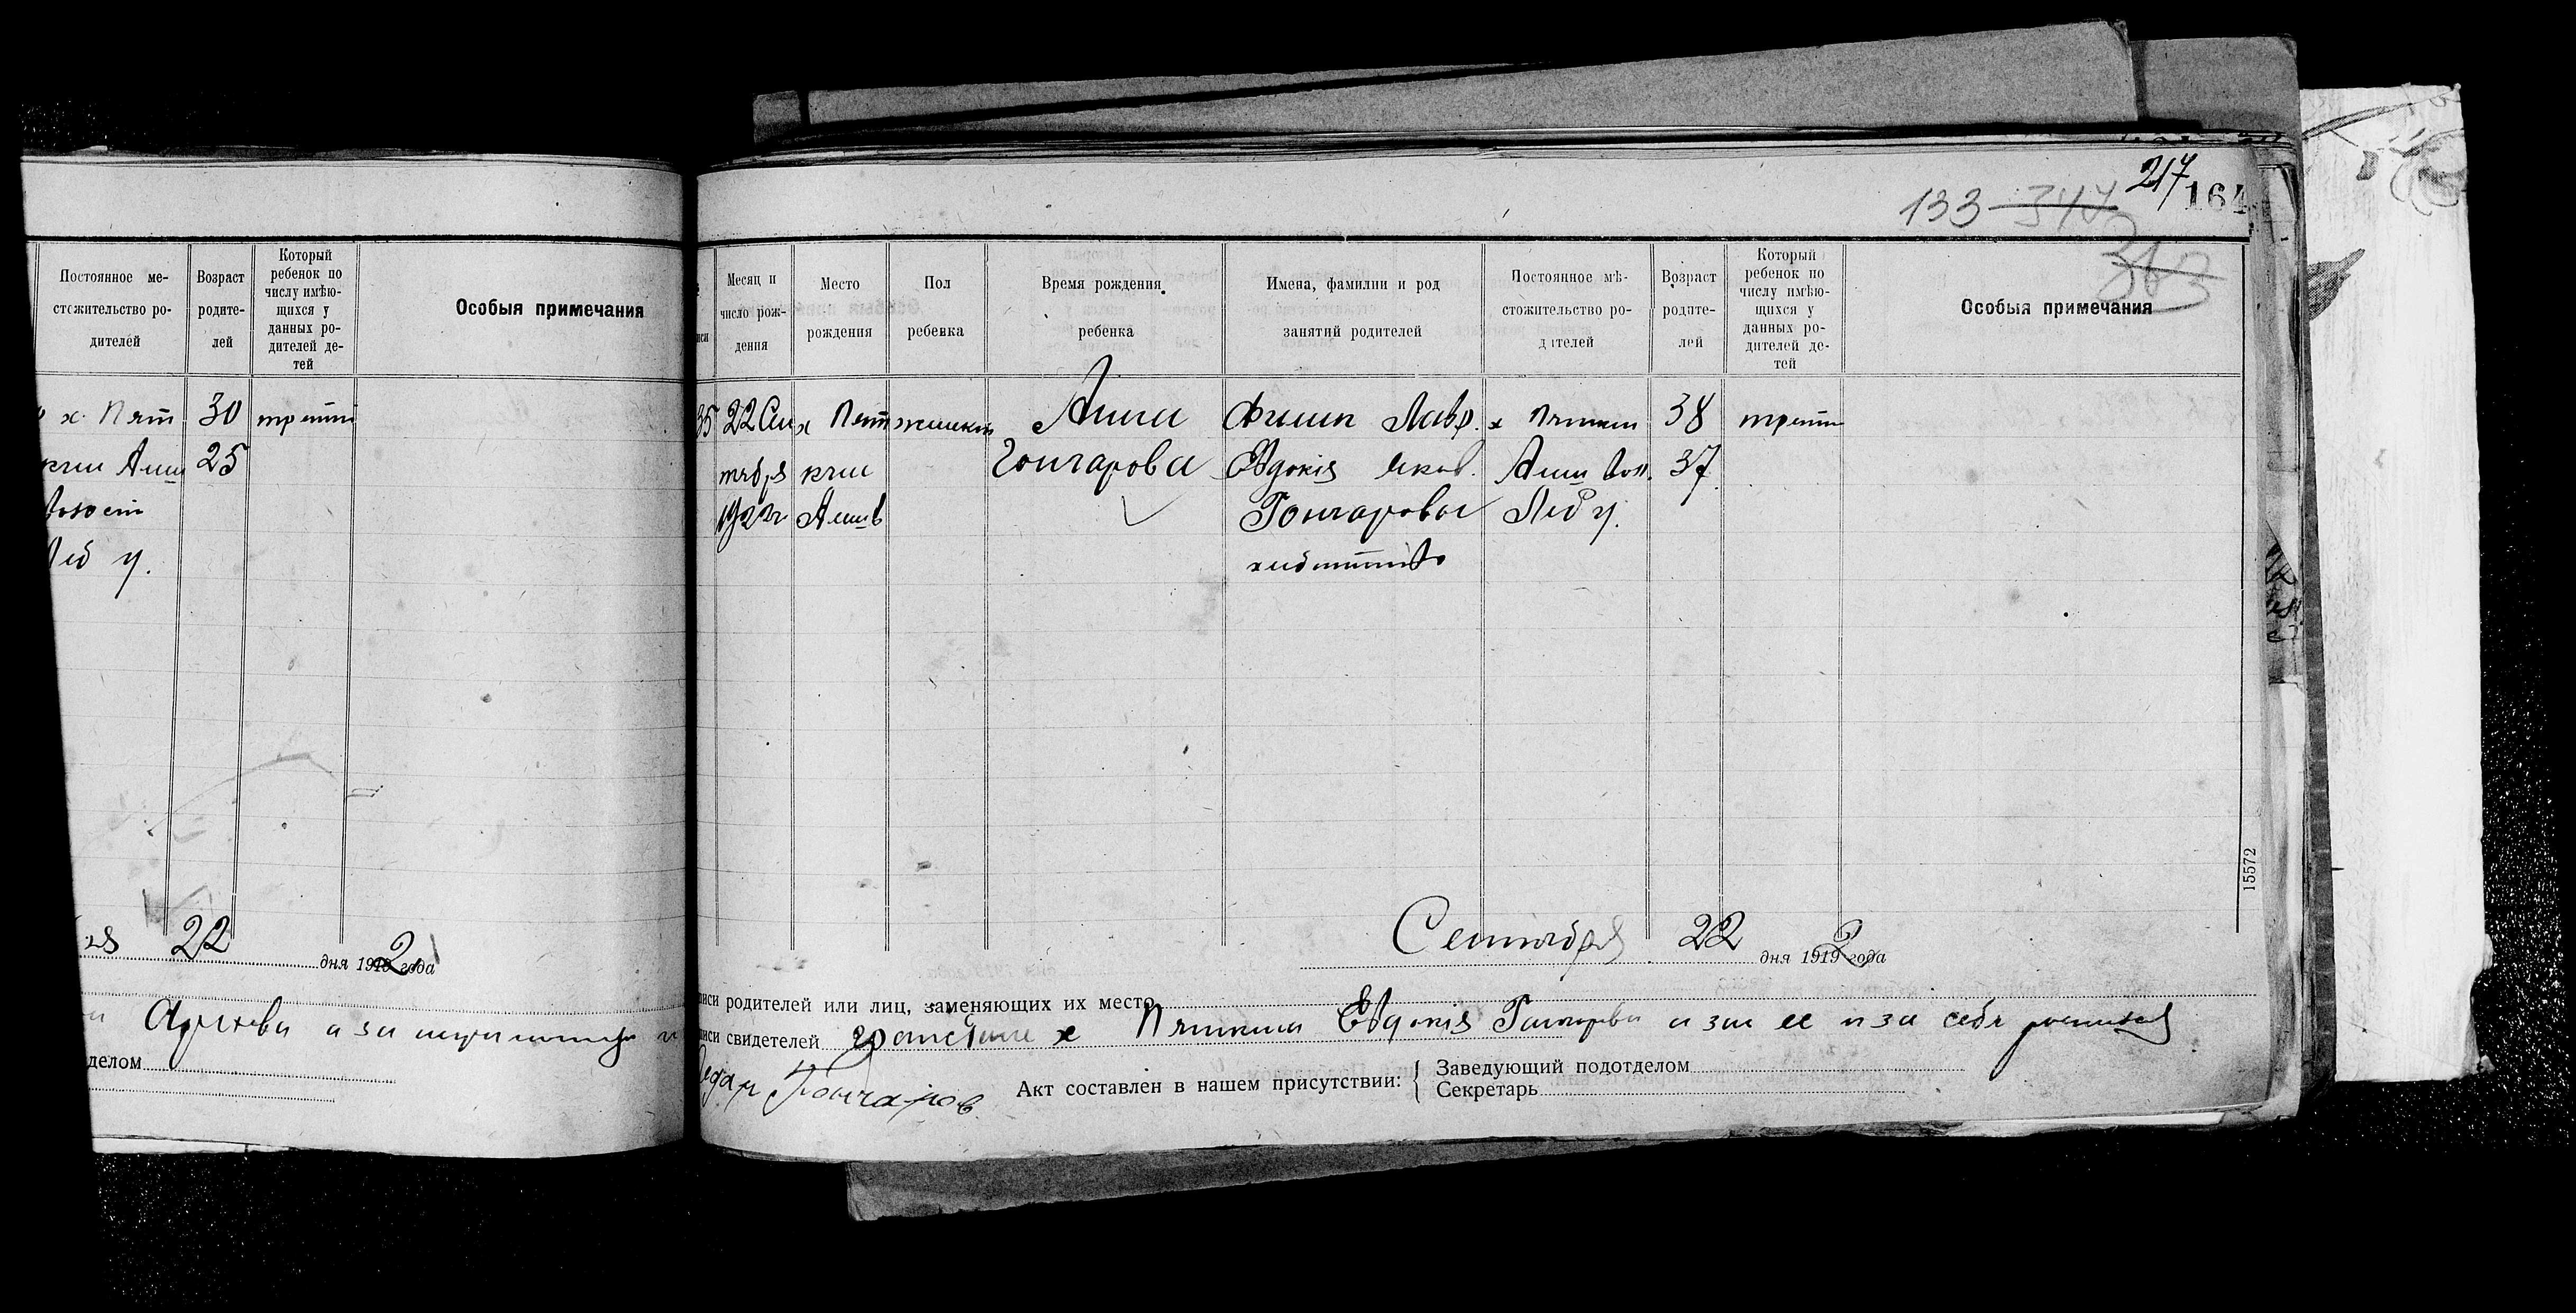 217
133 347 164
363
Постоянное ме-
стожительство ро-
дителей
Возраст
родите-
лей
Который
ребенок по
числу имѣю-
щихся у
данных ро-
дителей де-
тей
Особыя примечания
х. Пят
30
25
Леб у.
22
дня 1919 2 года
делом
Месяц и
число рож-
дения
Место
рождения
Пол
ребенка
Время рождения
ребенка
Имена, фамилии и род
занятий родителей
Постоянное мѣ-
стожительство ро-
дителей
Возраст
родите-
лей
Который
ребенок по
числу имѣю-
щихся у
данных ро-
дителей де-
тей
Особыя примечания
35
22 Сен
тября
1922г
х Пят
кин
Анна
Гончарова
Филип Лавр.
Евдокия Яков.
Гончаровы
38
37
Леб у.
15572
Сентября 22 дня 1919 2 года
писи родителей или лиц, заменяющих их место
писи свидетелей гражданин х Пяткин Евдокия Гончарова а за ее и за себя
Гончаров
Акт составлен в нашем присутствии:
Заведующий подотделом
Секретарь